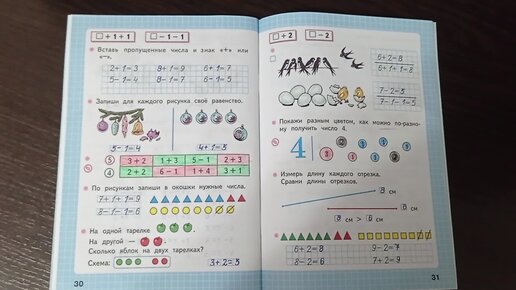 □ + 1 + 1 □ − 1 − 1
Вставь пропущенные числа и знак «+» или
«−».
2 + 1 = 3 8 + 1 = 9 6 + 1 = 7
5 − 1 = 4 8 − 1 = 7 6 − 1 = 5
Запиши для каждого рисунка своё равенство.
5 − 1 = 4 4 + 1 = 5
5 3 + 2 1 + 3 5 − 1 2 + 3
4 2 + 2 6 − 1 1 + 4 1 + 3
По рисункам запиши в окошки нужные числа.
7 + 1 + 1 = 9
8 − 1 − 1 = 6
На одной тарелке
На другой —
Сколько яблок на двух тарелках?
Схема: 3 + 2 = 5
30
□ + 2 □ − 2
6 + 2 = 8
6 + 1 + 1 = 8
7 − 2 = 5
7 − 1 − 1 = 5
Покажи разным цветом, как можно по-разно-
му получить число 4.
4
Измерь длину каждого отрезка.
Сравни длины отрезков.
8 см
6 см
8 см > 6 см
6 + 2 = 8 9 − 2 = 7
8 − 2 = 6 7 + 2 = 9
31